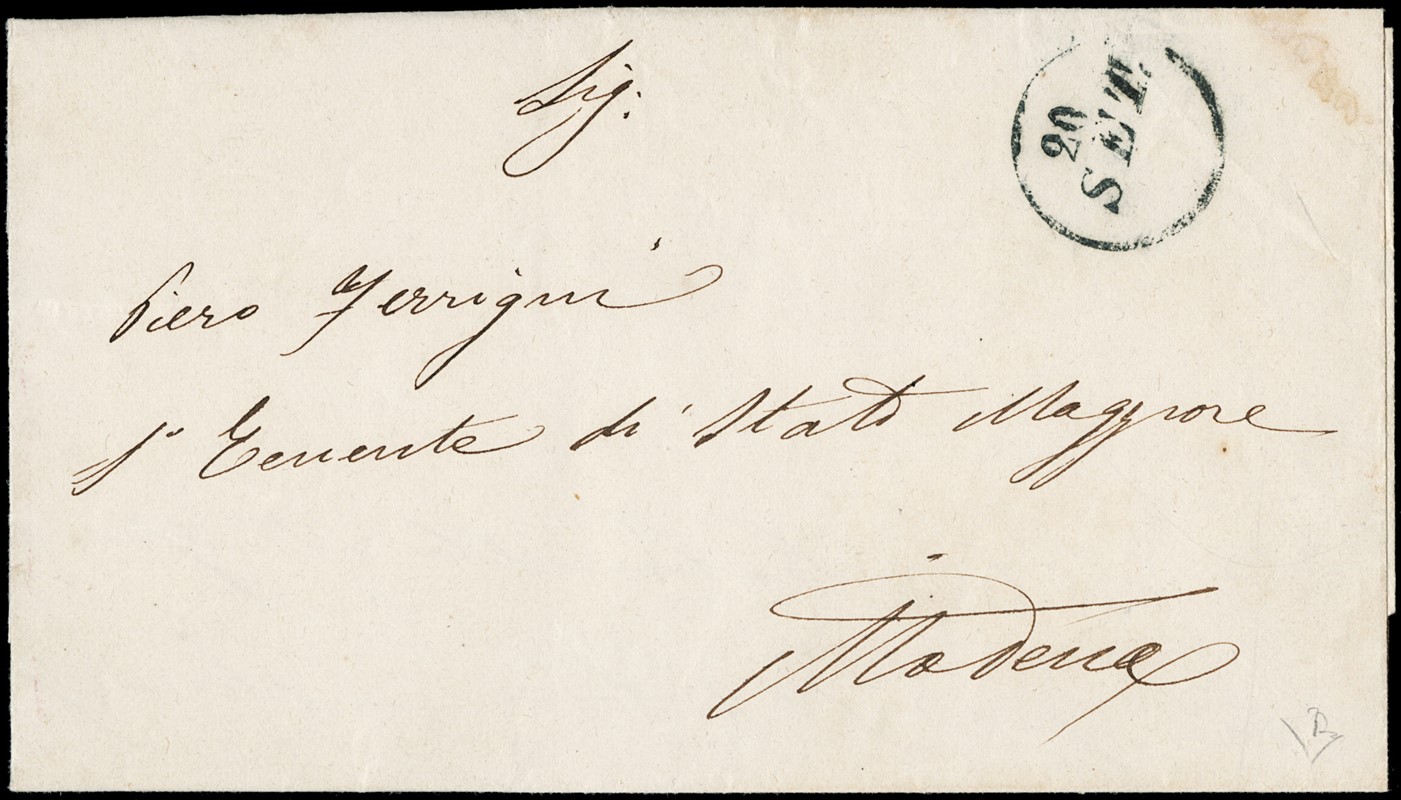 Sig:
20
SET.
Piero Ferrigni
S° Tenente di Stato Maggiore
Modena